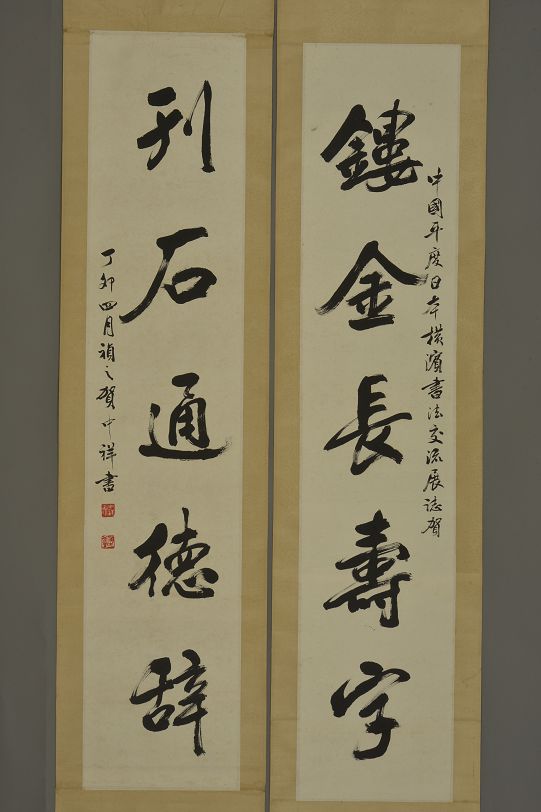 鏤金長壽字
中國年度日本橫濱書法交流展誌賀
刊石通德辞
丁卯四月禎之賀中祥書